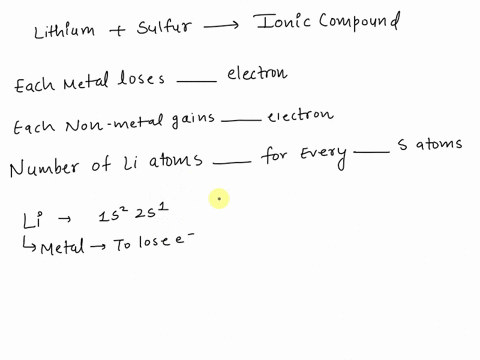 Lithium + Sulfur → Ionic Compound
Each Metal loses ___ electron
Each Non-metal gains ___ electron
Number of Li atoms ___ for Every ___ S atoms
Li → 1s² 2s¹
↳ Metal → To lose e⁻